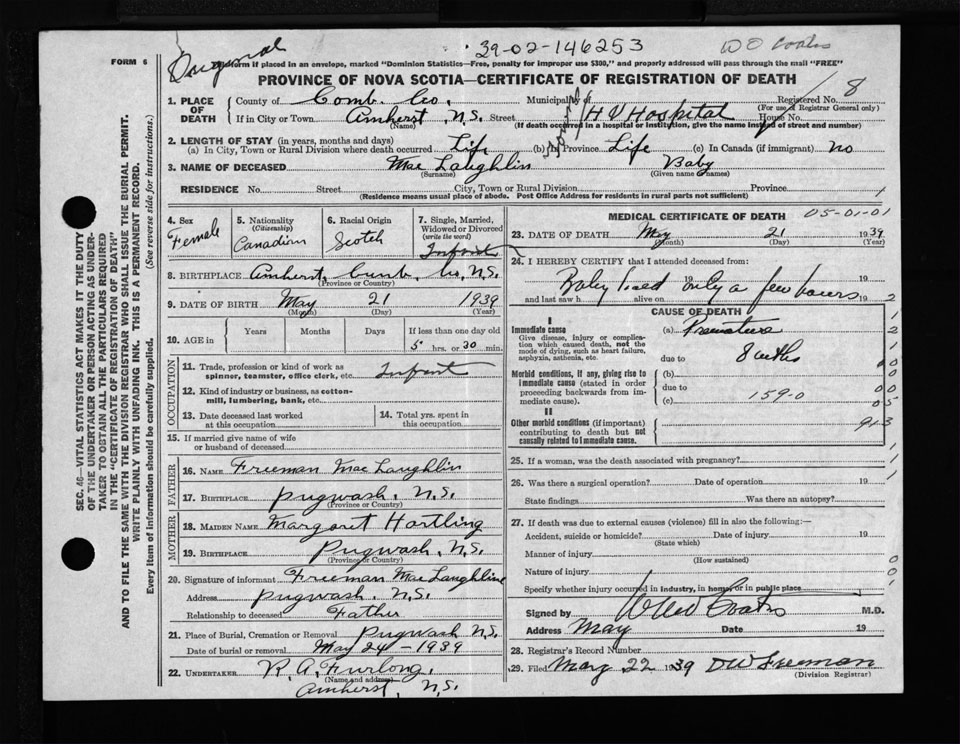 FORM 6
Original
39-02-146253
WO Coates
form if placed in an envelope, marked "Dominion Statistics—Free, penalty for improper use $300," and properly addressed will pass through the mail "FREE"
PROVINCE OF NOVA SCOTIA—CERTIFICATE OF REGISTRATION OF DEATH
1. PLACE OF DEATH
County of Comb. Co. Municipality of Registered No. 8
(For use of Registrar General only)
If in City or Town Amherst, N.S. Street H V Hospital House No.
(Name) (If death occurred in a hospital or institution, give the name instead of street and number)
2. LENGTH OF STAY (in years, months and days)
(a) In City, Town or Rural Division where death occurred Life (b) In Province Life (c) In Canada (if immigrant) no
3. NAME OF DECEASED Mac Laughlin Baby
(Surname) (Given name or names)
RESIDENCE No. Street City, Town or Rural Division Province 1
(Residence means usual place of abode. Post Office Address for residents in rural parts not sufficient)
4. Sex Female
5. Nationality (Citizenship) Canadian
6. Racial Origin Scotch
7. Single, Married, Widowed or Divorced (write the word) Infant
8. BIRTHPLACE Amherst, Cumb. Co, N.S.
(Province or Country)
9. DATE OF BIRTH May 21 1939
(Month) (Day) (Year)
10. AGE in Years Months Days If less than one day old
5 hrs. or 30 min.
OCCUPATION
11. Trade, profession or kind of work as spinner, teamster, office clerk, etc. Infant
12. Kind of industry or business, as cotton-mill, lumbering, bank, etc.
13. Date deceased last worked at this occupation
14. Total yrs. spent in this occupation
15. If married give name of wife or husband of deceased
FATHER
16. NAME Freeman Mac Laughlin
17. BIRTHPLACE Pugwash, N.S.
(Province or Country)
MOTHER
18. MAIDEN NAME Margaret Hartling
19. BIRTHPLACE Pugwash, N.S.
(Province or Country)
20. Signature of informant Freeman Mac Laughline
Address Pugwash, N.S.
Relationship to deceased Father
21. Place of Burial, Cremation or Removal Pugwash N.S.
Date of burial or removal May 24-1939
22. UNDERTAKER R. A. Furlong.
(Name and address)
Amherst, N.S.
MEDICAL CERTIFICATE OF DEATH 05-01-01
23. DATE OF DEATH May 21 1939
(Month) (Day) (Year)
24. I HEREBY CERTIFY that I attended deceased from:
19 19
Baby lived only a few hours
and last saw h alive on 19 2
CAUSE OF DEATH
I
Immediate cause
Give disease, injury or complication which caused death, not the mode of dying, such as heart failure, asphyxia, asthenia, etc.
(a) Premature
due to 8 mths
Morbid conditions, if any, giving rise to immediate cause (stated in order proceeding backwards from immediate cause).
(b)
due to
(c) 159-0
II
Other morbid conditions (if important) contributing to death but not causally related to immediate cause.
913
25. If a woman, was the death associated with pregnancy?
26. Was there a surgical operation? Date of operation 19
State findings Was there an autopsy?
27. If death was due to external causes (violence) fill in also the following:—
Accident, suicide or homicide? Date of injury 19
(State which)
Manner of injury
(How sustained)
Nature of injury
Specify whether injury occurred in industry, in home, or in public place
Signed by Coates M.D.
Address May Date 19
28. Registrar's Record Number
29. Filed May 22 1939 D W Freeman
(Division Registrar)
SEC. 46—VITAL STATISTICS ACT MAKES IT THE DUTY
OF THE UNDERTAKER OR PERSON ACTING AS UNDER-
TAKER TO OBTAIN ALL THE PARTICULARS REQUIRED
IN THE "CERTIFICATE OF REGISTRATION OF DEATH"
AND TO FILE THE SAME WITH THE DIVISION REGISTRAR WHO SHALL ISSUE THE BURIAL PERMIT.
WRITE PLAINLY WITH UNFADING INK. THIS IS A PERMANENT RECORD.
Every item of information should be carefully supplied. (See reverse side for instructions.)